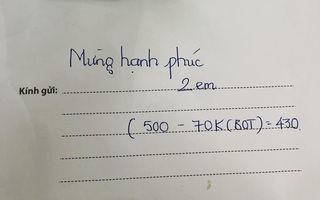 Mừng hạnh phúc
2 em
Kính gửi:
( 500 - 70K (BOT) = 430